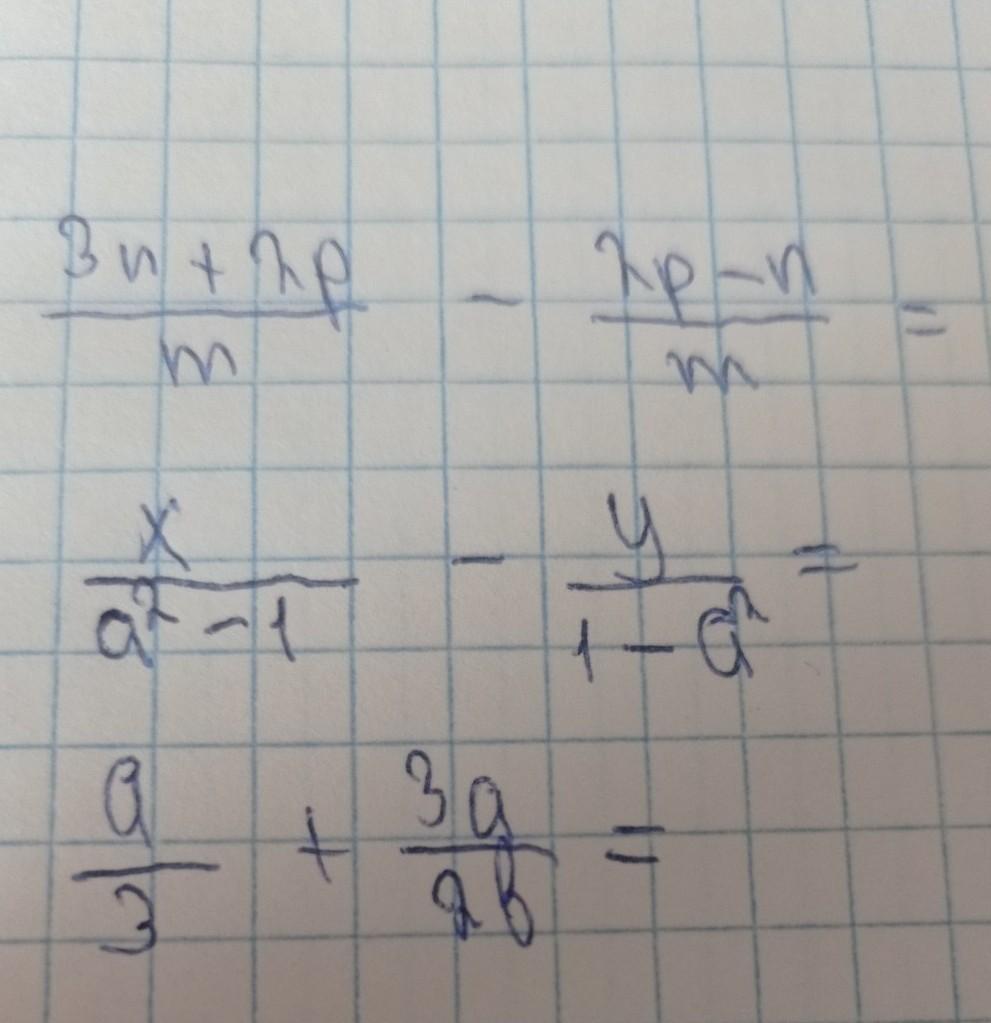 (3n + 2p)/m - (2p - n)/m =
x/(a² - 1) - y/(1 - a²) =
a/3 + 3a/2b =